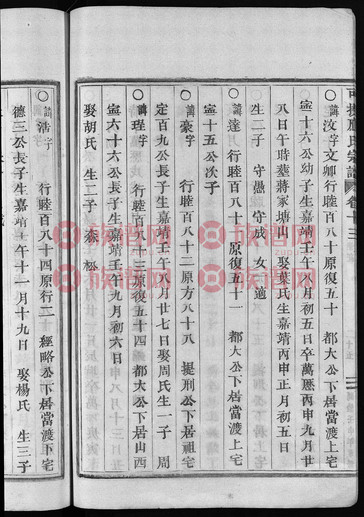 ○諱汶字文卿行睦百八十一原復五十一都大公下居當渡上宅
寍六十六公幼子生嘉靖壬午六月初五日卒萬歷丙申九月廿
八日午時塟蔣家塘山娶葉氏生嘉靖丙申正月初五日
生二子守愚守成女一適
○諱達行睦百八十一原復五十一都大公下居當渡上宅
寍十五公次子
○諱豪字行睦百八十二原方八十八提刑公下居祖宅
定百九公長子生嘉靖壬午八月廿七日娶周氏生一子周
○諱珵字行睦百八十三原復五十四都大公下居山西
寍六十六公長子生嘉靖壬午九月初六日
娶胡氏生二子森松
○諱浩字行睦百八十四原行二經略公下居當渡上宅
德三公長子生嘉靖壬午十一月十九日娶楊氏生三子
族譜网
族譜网
族譜网
族譜网